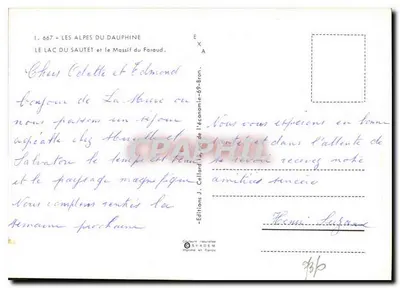 I. 667 - LES ALPES DU DAUPHINE
LE LAC DU SAUTET et le Massif du Faraud.
Chers Odette et Edmond
bonjour de La Mure ou
nous passons un séjour
agréable chez et
Salvator le temps est beau
et le paysage magnifique
Nous comptons rentrer la
semaine prochaine
EXA
Editions J. Cellard de l'économie-69-Bron.
Nous vous espérons en bonne
santé et dans l'attente de
se revoir recevez notre
amitiés sincère
Henri Suzanne